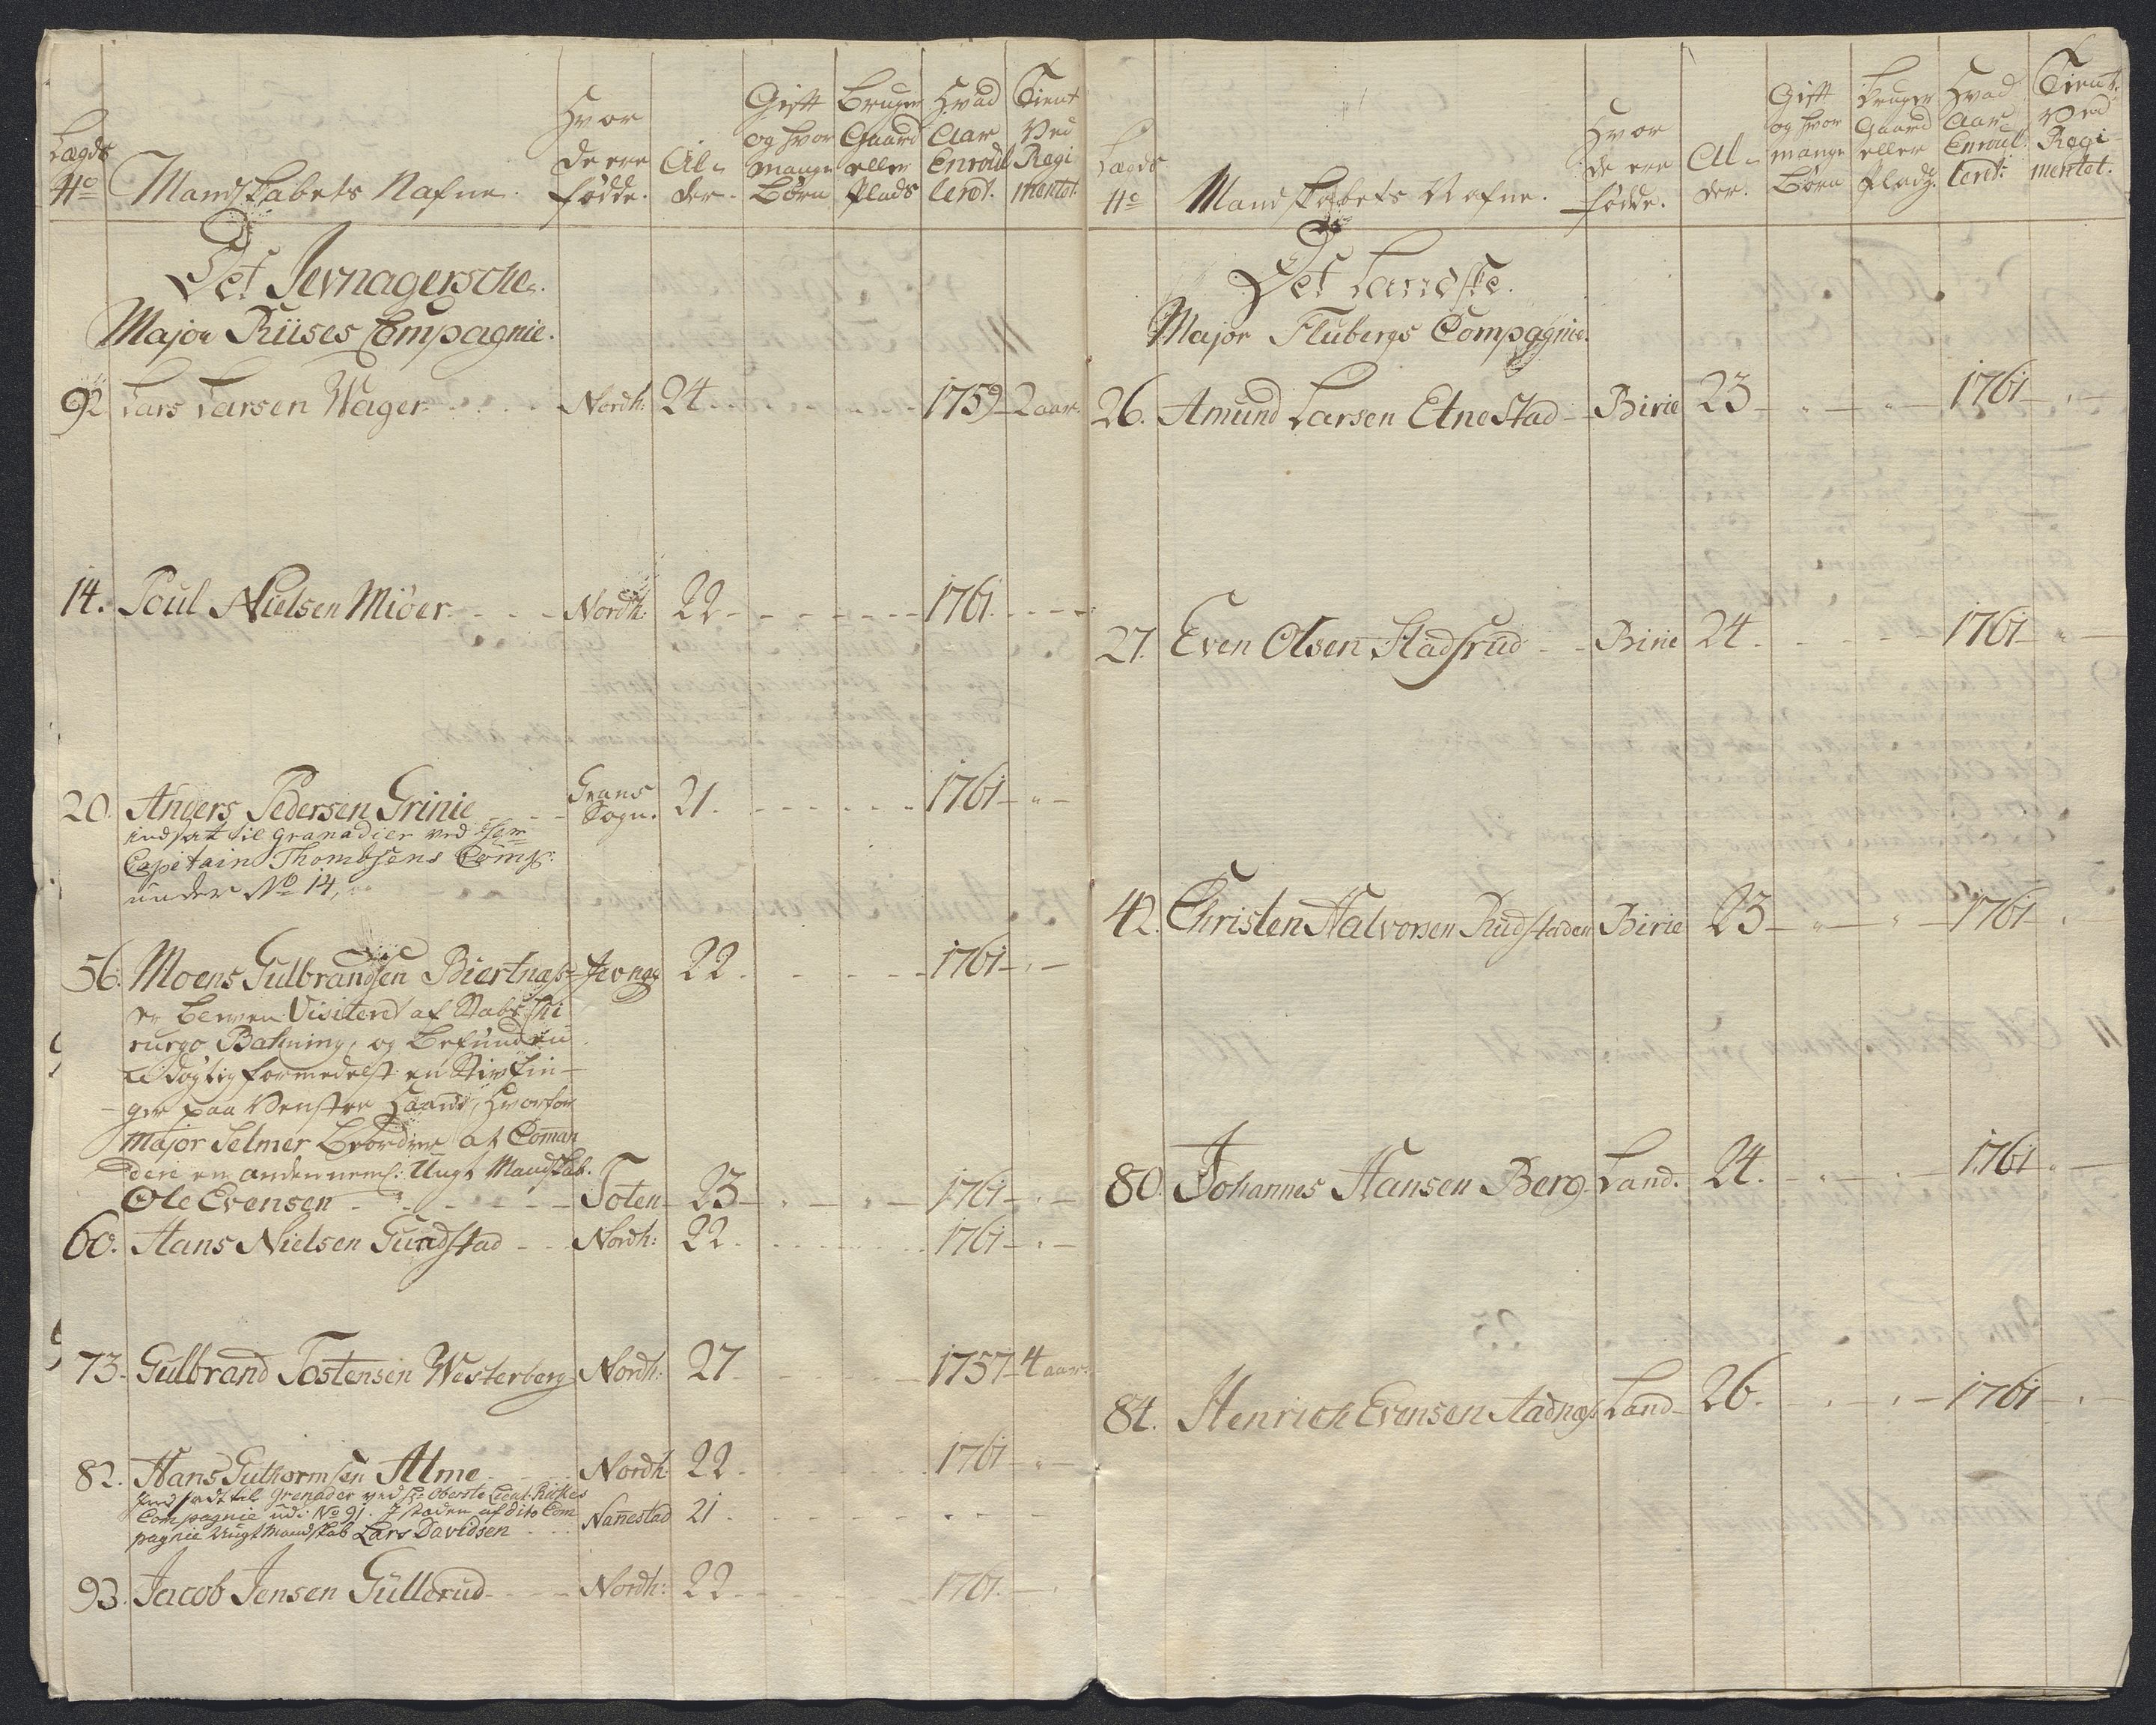 Lægds No Mandskabets Nafne. Hvor de ere fødde. Al-der. Gift og hvor mange Børn Bruger Gaard eller Plads Hvad Aar Enroulleret. Tient Ved Regimentet.
Det Jevnagersche
Major Riises Compagnie.
92 Lars Larsen Wager Nordh: 24 1759 2 aar
14. Poul Nielsen Miöer Nordh: 22 1761
20. Anders Pedersen Grinie Grans Sogn. 21. 1761
indsat til Granadier ved Hr
Capitain Thombsens Comp:
under No 14,
56. Moens Gulbrandsen Biertnæs Jevnag 22 1761
er bleven Visiteret af Stabs Chi
rurgo Bahning, og befunden u
dögtig formedelst en Stiv fin-
ger paa Venstre Haand, Hvorfor
Major Selmer beordrer at Coman
dere en anden neml: Ungt Mandskab.
Ole Evensen Toten 23 1761
60. Hans Nielsen Gundstad Nordh: 22 1761
73. Gulbrand Tostensen Westerberg Nordh: 27 1757 4 aar
82. Hans Guthormsen Alme Nordh 22 1761
Indsadt til Grenader ved Hr Oberste Lieut.
Compagnie udi No 91. I staden af dito Com
pagnie Ungt Mandskab Lars Davidsen Nanestad 21
93. Jacob Jensen Gullerud Nordh: 22 1761
Lægds No Mandskabets Nafne. Hvor de ere fødde. Al-der. Gift og hvor mange Börn Bruger Gaard eller Pladz. Hvad Aar Enroulleret: Tient Ved Regimentet.
Det Landske.
Major Flubergs Compagnie.
26. Amund Larsen Etnestad Birie 23 1761
27. Even Olsen Stadsrud Birie 24 1761
42. Christen Halvorsen Rudstaden Birie 23 1761
80. Johannes Hansen Berg Land. 24. 1761
84. Henrich Evensen Aadnæs Land 26. 1761